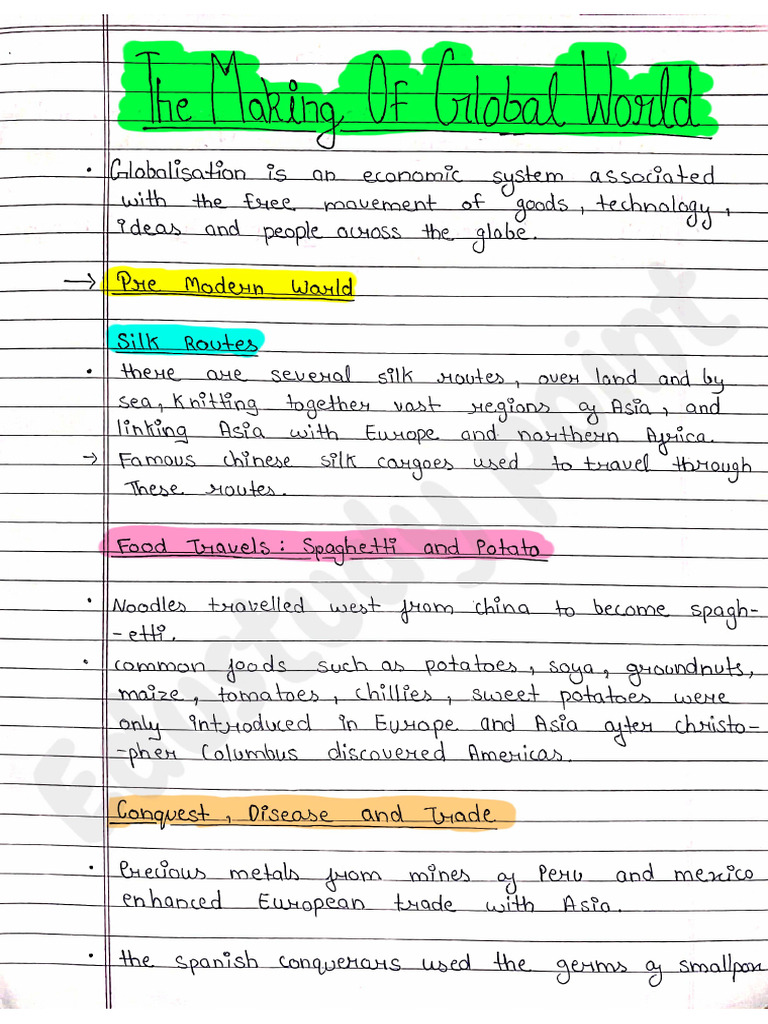 The Making Of Global World
• Globalisation is an economic system associated
with the free movement of goods, technology,
ideas and people across the globe.
→ Pre Modern World
Silk Routes
• there are several silk routes, over land and by
sea, Knitting together vast regions of Asia, and
linking Asia with Europe and northern Africa.
→ Famous chinese silk cargoes used to travel through
These routes.
Food Travels: Spaghetti and Potato
• Noodles travelled west from china to become spagh-
-etti.
• common foods such as potatoes, soya, groundnuts,
maize, tomatoes, chillies, sweet potatoes were
only introduced in Europe and Asia after christo-
-pher Columbus discovered Americas.
Conquest, Disease and Trade
• Precious metals from mines of Peru and mexico
enhanced European trade with Asia.
• the spanish conquerars used the germs of smallpox
Edustudy point